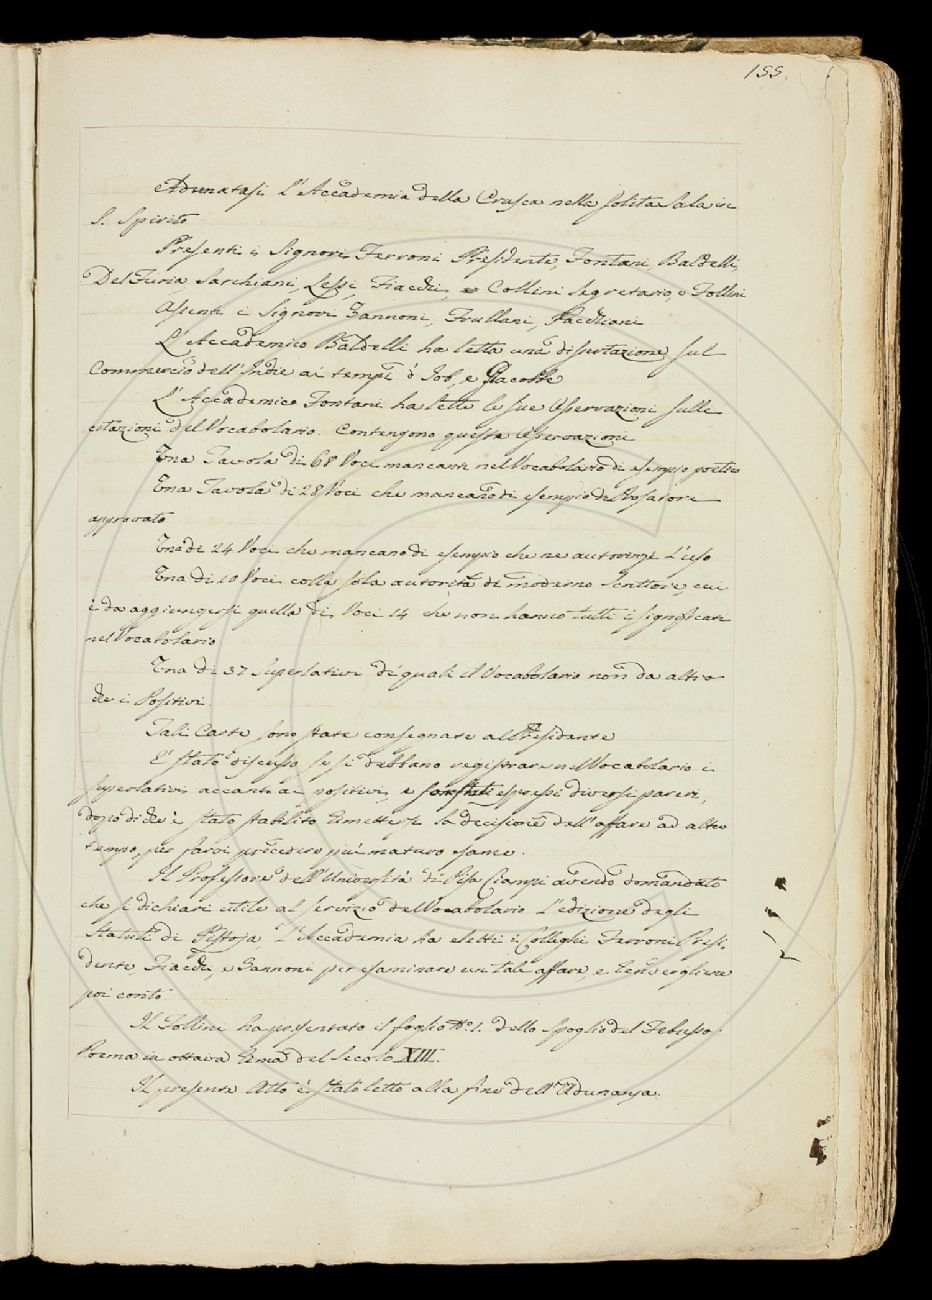 155.
Adunatasi l'Accademia della Crusca nella solita Sala in
S. Spirito
Presenti i Signori Ferroni Presidente, Fontani, Baldelli,
Del Furia Sarchiani, Lessi, Fiacchi, e Collini Segretario, e Follini
Assenti i Signori Zannoni, Frullani,
L'Accademico Baldelli ha letta una dissertazione sul
Commercio dell'Indie ai tempi di Job, e Giacobbe
L'Accademico Fontani ha letto le sue Osservazioni sulle
citazioni del Vocabolario. Contengono queste Osservazioni
Una Tavola di 68 Voci mancanti nel Vocabolario di esempio poetico
Una Tavola di 28 Voci che mancano di esempio di Prosatore
approvato
Una di 24 Voci che mancano di esempio che ne autorizzi l'uso
Una di 10 Voci colla sola autorità di moderno Scrittore, cui
è da aggiungersi quella di Voci 14 che non hanno tutti i significati
nel Vocabolario
Una di 57 Superlativi de' quali il Vocabolario non dà altro
che i Positivi.
Tali Carte sono state consegnate al Presidente
E' stato discusso se si debbano registrare nel Vocabolario i
superlativi accanto ai positivi, e sonostati espressi diversi pareri,
dopo di che è stato stabilito rimettersi la decisione dell'affare ad altro
tempo, per farvi precedere più maturo esame.
Il Professore dell'Università di Pisa Ciampi avendo domandato
che si dichiari utile al servizio del Vocabolario l'edizione degli
Statuti di Pistoja, l'Accademia ha eletti i Colleghi Ferroni Presi-
dente, Fiacchi, e Zannoni per esaminare un tale affare, e
poi conto
Il Follini ha presentato il foglio No. 1. dello Spoglio del Febusso
Poema in ottava rima del Secolo XIII.
Il presente Atto è stato letto alla fine dell'Adunanza.